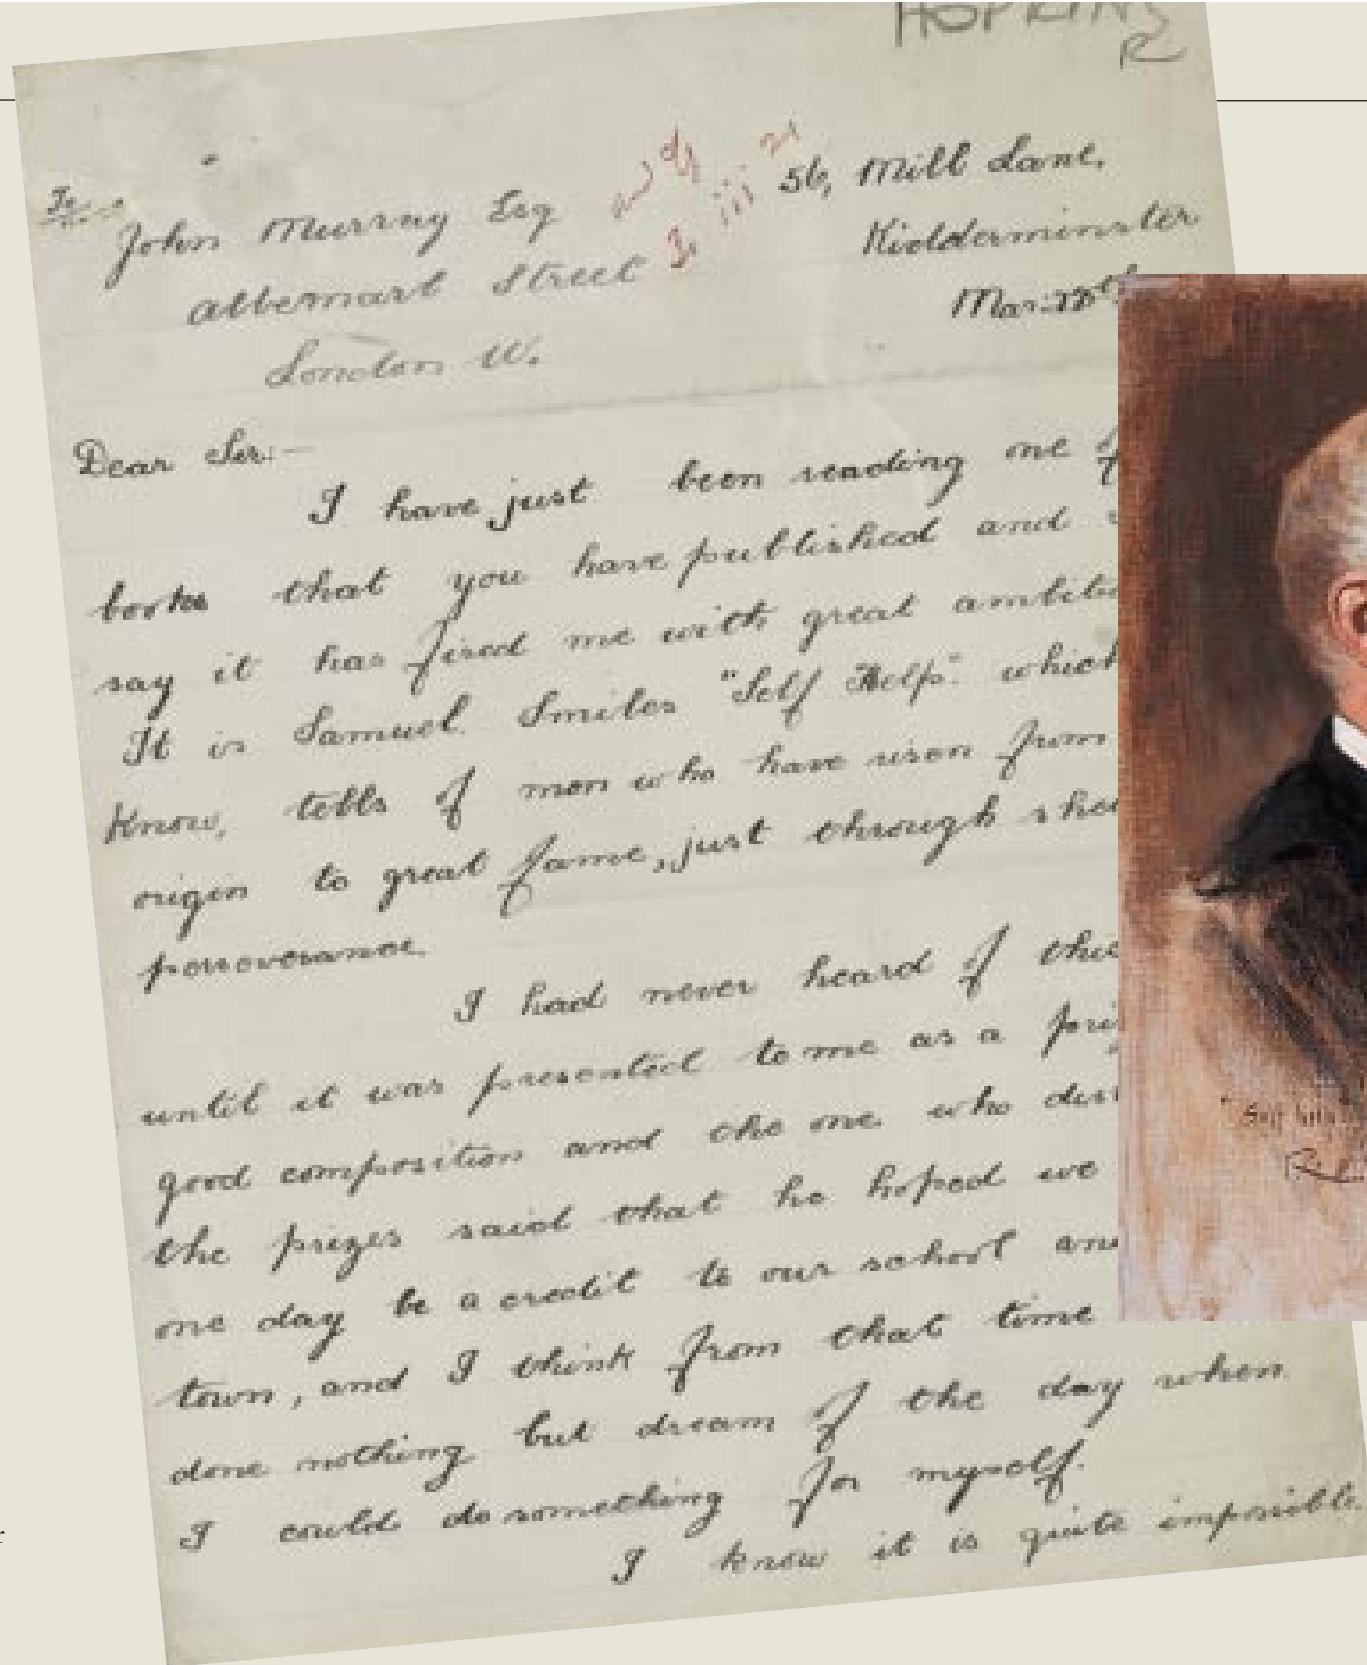 HOPKINS
R
56, Mill Lane,
Kidderminster
To
John Murray Esq
Albemarl Street
London W.
Dear Sir:—
I have just been reading one of
books that you have published and
say it has fired me with great ambitio
It is Samuel Smiles "Self Help" which
know, tells of men who have risen from
origin to great fame, just through shee
perseverance.
I had never heard of this
until it was presented to me as a pri
good composition and the one who dist
the prizes said that he hoped we
one day be a credit to our school and
town, and I think from that time
done nothing but dream of the day when
I could do something for myself.
I know it is quite impossible